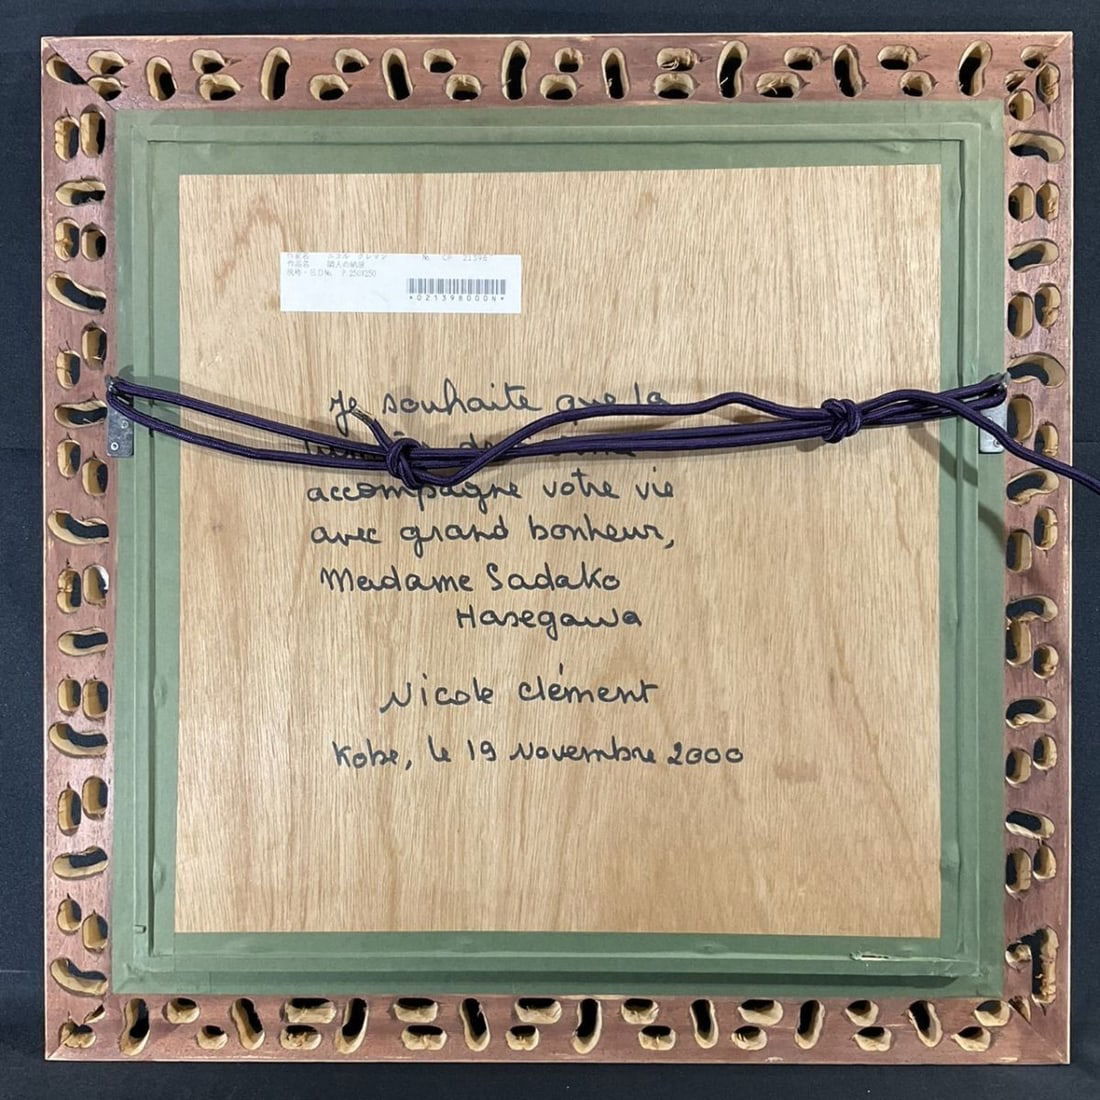 作家名 ニコル クレマン № CP 21398
作品名 隣人の納屋
規格・ED№ P.250/250
*021398000N*
Je souhaite que la
accompagne votre vie
avec grand bonheur,
Madame Sadako
Hasegawa
Nicole Clément
Kobe, le 19 Novembre 2000